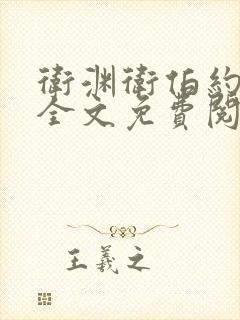 衛渊衛伯約
全文免費閱
王羲之